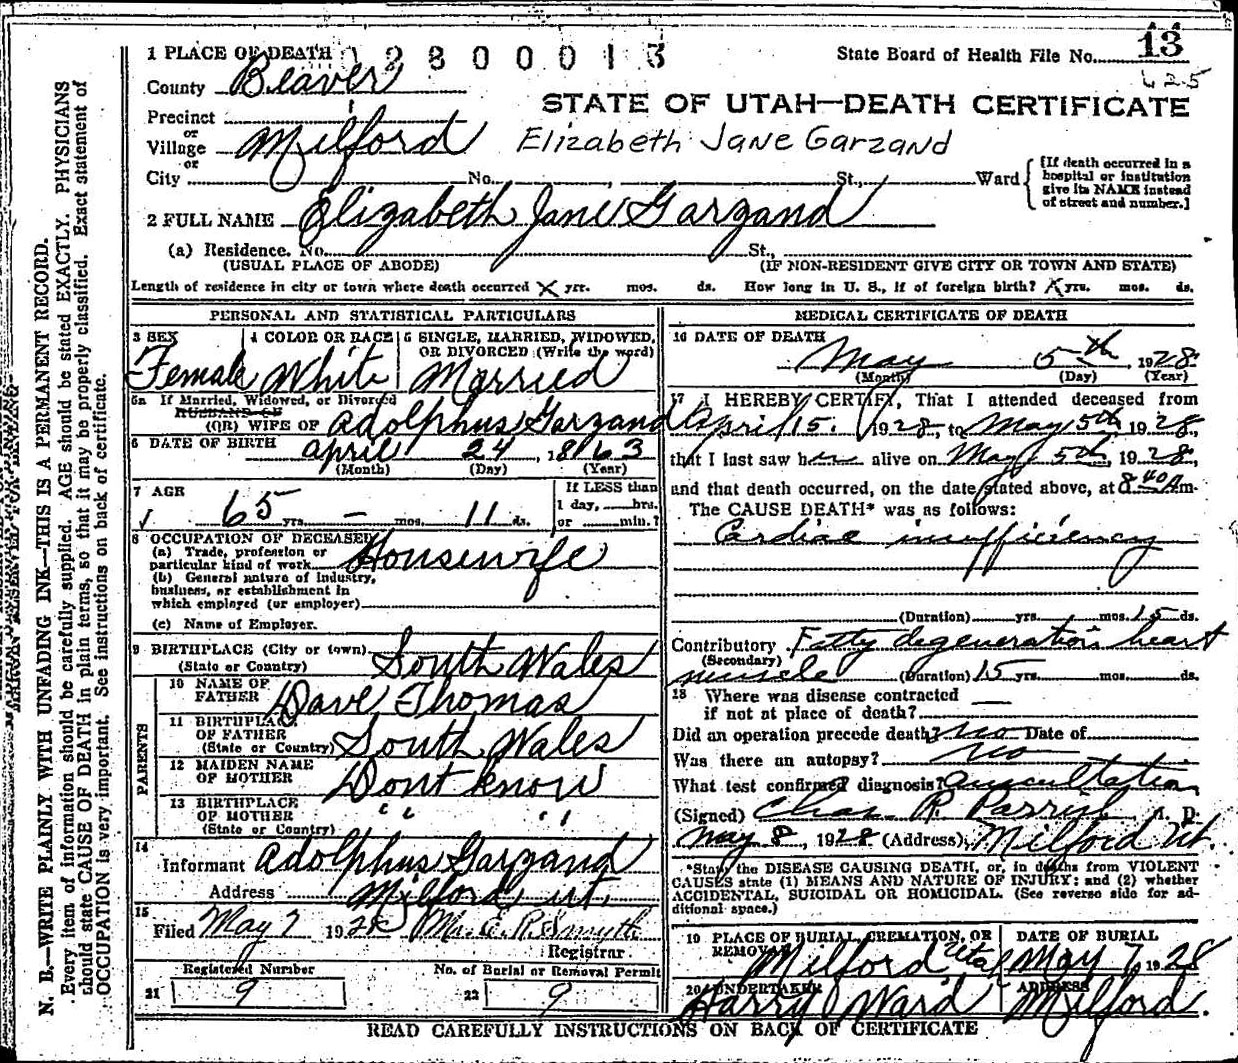 1 PLACE OF DEATH 0 2 8 0 0 0 1 3 State Board of Health File No. 13
625
County Beaver
STATE OF UTAH—DEATH CERTIFICATE
Precinct
or
Village Milford Elizabeth Jane Garzand
or
City No. , St., Ward
[If death occurred in a hospital or institution give its NAME instead of street and number.]
2 FULL NAME Elizabeth Jane Garzand
(a) Residence. No. St.,
(USUAL PLACE OF ABODE) (IF NON-RESIDENT GIVE CITY OR TOWN AND STATE)
Length of residence in city or town where death occurred X yrs. mos. ds. How long in U. S., if of foreign birth? X yrs. mos. ds.
PERSONAL AND STATISTICAL PARTICULARS
3 SEX 4 COLOR OR RACE 5 SINGLE, MARRIED, WIDOWED,
OR DIVORCED (Write the word)
Female White Married
5a If Married, Widowed, or Divorced
HUSBAND OF
(OR) WIFE OF Adolphus Garzand
6 DATE OF BIRTH April 24, 1863
(Month) (Day) (Year)
7 AGE If LESS than
1 day, hrs.
√ 65 yrs. — mos. 11 ds. or min.?
8 OCCUPATION OF DECEASED
(a) Trade, profession or
particular kind of work Housewife
(b) General nature of industry,
business, or establishment in
which employed (or employer)
(c) Name of Employer.
9 BIRTHPLACE (City or town) South Wales
(State or Country)
PARENTS
10 NAME OF
FATHER Dave Thomas
11 BIRTHPLACE
OF FATHER South Wales
(State or Country)
12 MAIDEN NAME
OF MOTHER Dont know
13 BIRTHPLACE
OF MOTHER " "
(State or Country)
14
Informant Adolphus Garzand
Address Milford Ut.
15
Filed May 7 1928 Mrs. E. R. Smyth
Registrar.
Registered Number No. of Burial or Removal Permit
21 9 22 9
MEDICAL CERTIFICATE OF DEATH
16 DATE OF DEATH
May 5th 1928
(Month) (Day) (Year)
17 I HEREBY CERTIFY, That I attended deceased from
April 15. 1928, to May 5th, 1928,
that I last saw her alive on May 5th, 1928,
and that death occurred, on the date stated above, at 8 40 A m.
The CAUSE DEATH* was as follows:
Cardiac insufficiency
(Duration) yrs. mos. 15 ds.
Contributory Fatty degeneration heart
(Secondary)
muscle (Duration) 15 yrs. mos. ds.
18 Where was disease contracted
if not at place of death? —
Did an operation precede death? no Date of
Was there an autopsy? no
What test confirmed diagnosis? auscultation
(Signed) Chas. R. Parrish M. D.
May 8, 1928 (Address) Milford Ut.
*State the DISEASE CAUSING DEATH, or, in deaths from VIOLENT
CAUSES state (1) MEANS AND NATURE OF INJURY; and (2) whether
ACCIDENTAL, SUICIDAL OR HOMICIDAL. (See reverse side for ad-
ditional space.)
19 PLACE OF BURIAL, CREMATION, OR DATE OF BURIAL
REMOVAL Milford Utah May 7, 1928
20 UNDERTAKER ADDRESS
Harry Ward Milford.
READ CAREFULLY INSTRUCTIONS ON BACK OF CERTIFICATE
N. B.—WRITE PLAINLY WITH UNFADING INK—THIS IS A PERMANENT RECORD.
Every item of information should be carefully supplied. AGE should be stated EXACTLY. PHYSICIANS
should state CAUSE OF DEATH in plain terms, so that it may be properly classified. Exact statement of
OCCUPATION is very important. See instructions on back of certificate.